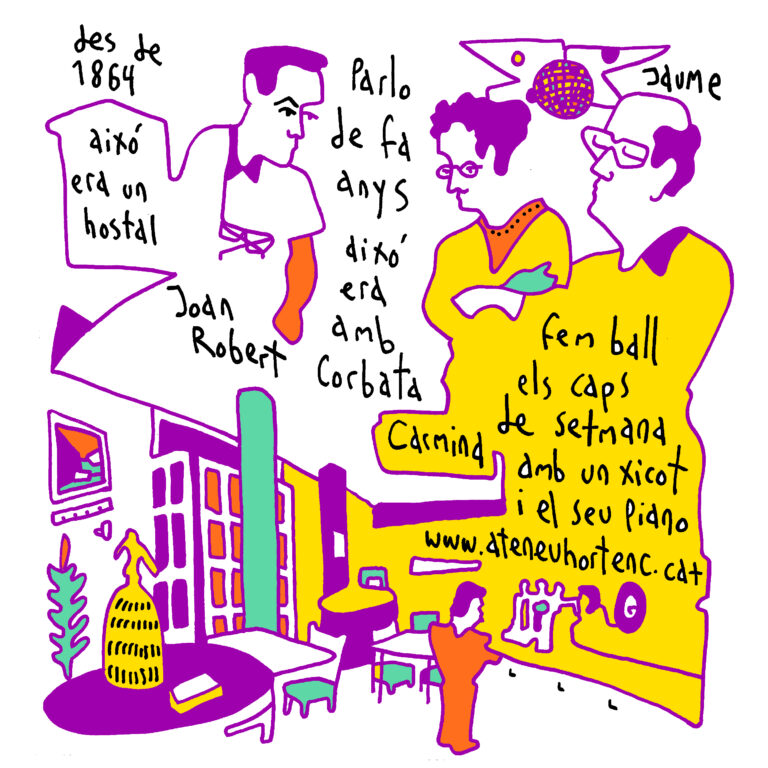 des de
1864
aixó
era un
hostal
Joan
Robert
Parlo
de fa
anys
aixó
era
amb
Corbata
Jaume
Carmina
fem ball
els caps
de setmana
amb un xicot
i el seu piano
www.ateneuhortenc.cat
G